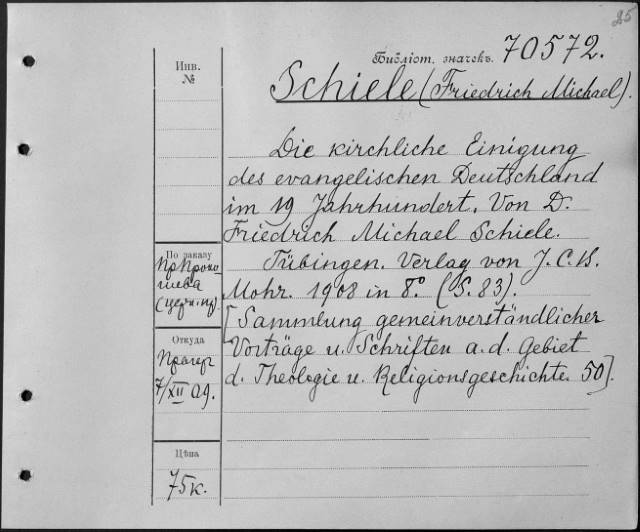 25
Библіот. значекъ. 70572.
Schiele (Friedrich Michael).
Инв.
№
Die kirchliche Einigung
des evangelischen Deutschland
im 19 Jahrhundert. Von D.
Friedrich Michael Schiele.
Tübingen. Verlag von J. C. B.
Mohr. 1908 in 8°. (S. 83).
[Sammlung gemeinverständlicher
Vorträge u. Schriften a. d. Gebiet
d. Theologie u. Religionsgeschichte. 50].
По заказу
Откуда
Прагер
7/XII 09.
Цѣна
75 к.